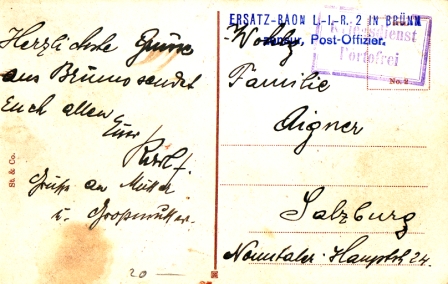 Herzlichste Grüsse
aus Brünn sendet
Euch allen
Euer
Karl.
Grüße an Mutter
u. Großmutter.
20 —
St. & Co.
ERSATZ-RAON L.-I.-R. 2 IN BRÜNN
Zensur, Post-Offizier.
Kriegsdienst
Portofrei
No. 2
Wohlg
Familie
Aigner
Salzburg
Nonntaler-Hauptstr 24.